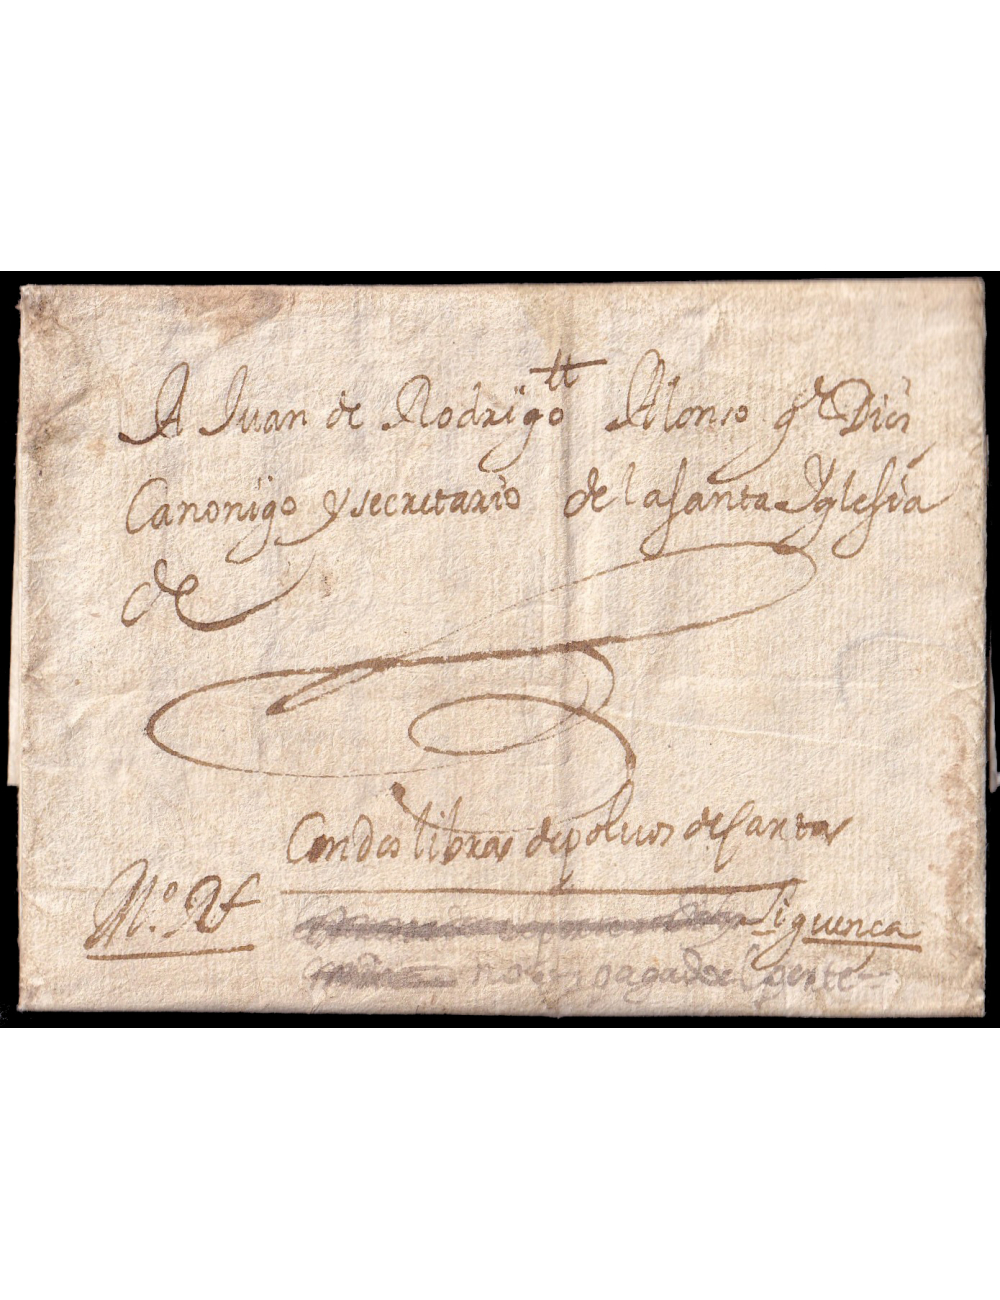 tt
A Juan de Rodrigo Alonso gde Dios
Canonigo y secretario de la Santa Yglesia
de
Con Dos libras de polvos de Santa
No. R
Siguenca
no ba pagado el porte